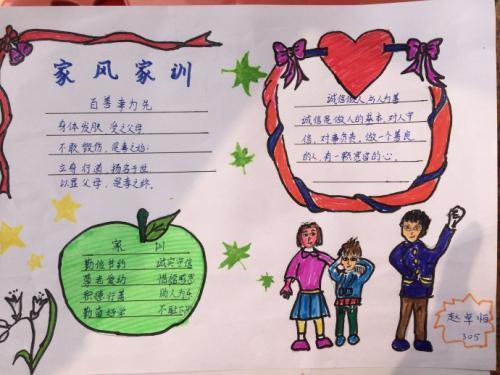 家风家训
百善孝为先
身体发肤,受之父母
不敢毁伤,是孝之始;
立身行道,扬名于世
以显父母,是孝之终。
诚信做人 与人为善
诚信是做人的基本,对人守
信,对事负责。做一个善良
的人,有一颗宽容的心。
家 训
勤俭节约 诚实守信
尊老爱幼
积德行善 助人为乐
勤奋好学 不耻
赵卓
305